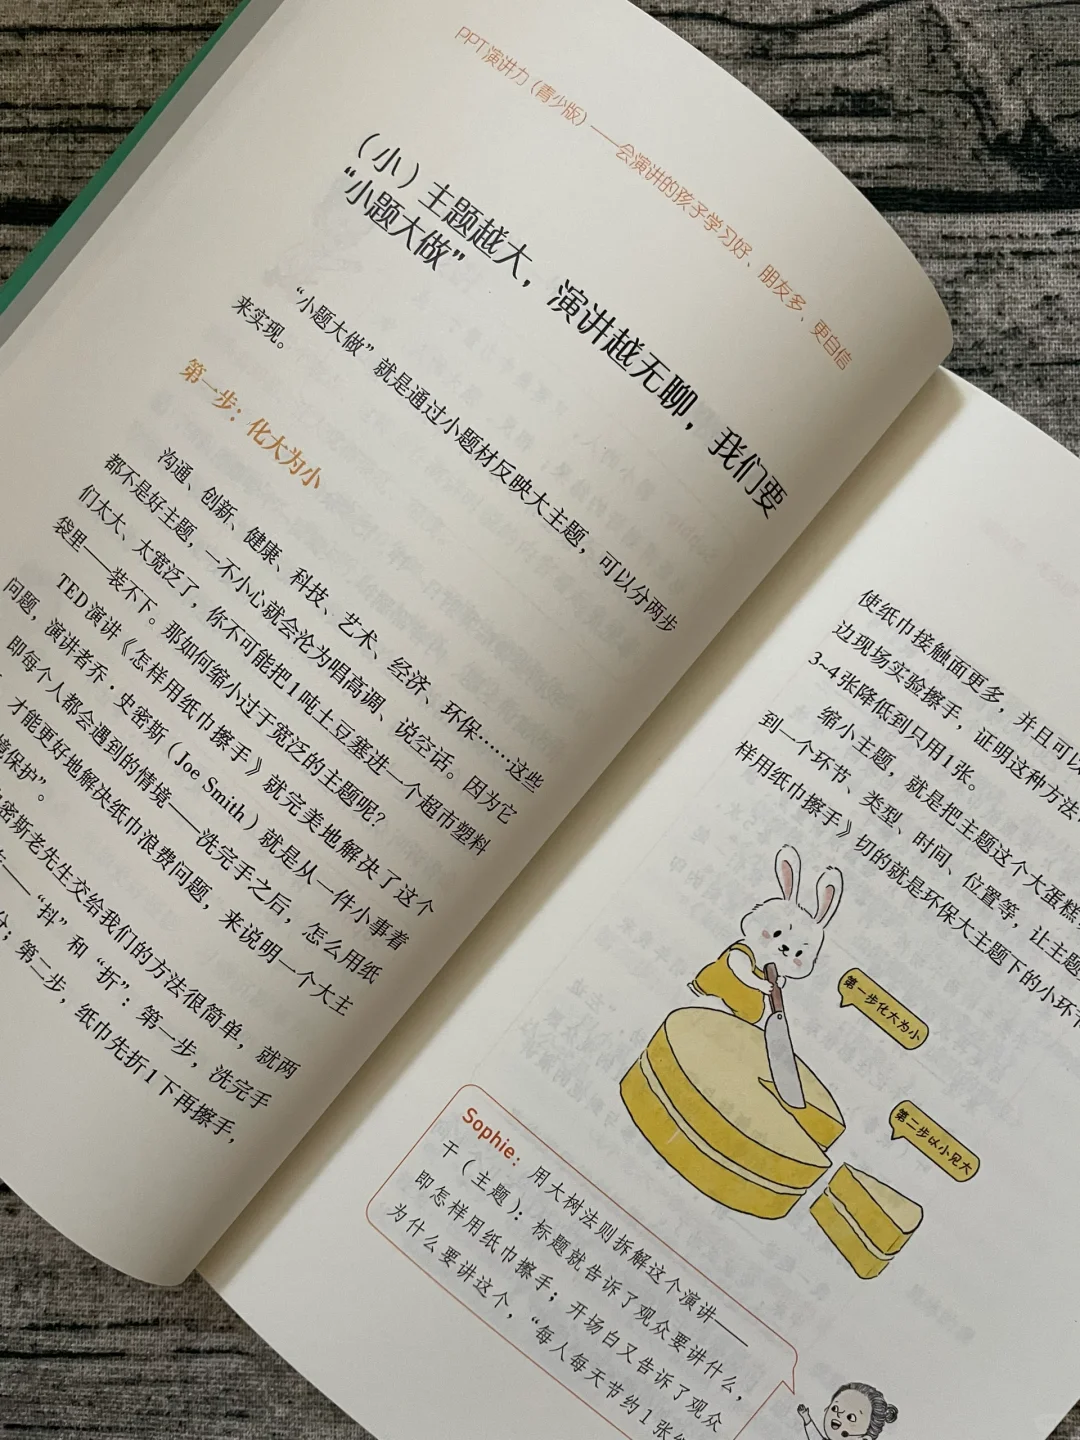 PPT演讲力（青少版）——会演讲的孩子学习好、朋友多、更自信
（小）主题越大，演讲越无聊，我们要
“小题大做”
“小题大做”就是通过小题材反映大主题，可以分两步
来实现。
第一步：化大为小
沟通、创新、健康、科技、艺术、经济、环保……这些
都不是好主题，一不小心就会沦为唱高调、说空话。因为它
们太大、太宽泛了，你不可能把1吨土豆塞进一个超市塑料
袋里——装不下。那如何缩小过于宽泛的主题呢？
TED演讲《怎样用纸巾擦手》就完美地解决了这个
问题，演讲者乔·史密斯（Joe Smith）就是从一件小事着
即每个人都会遇到的情境——洗完手之后，怎么用纸
，才能更好地解决纸巾浪费问题，来说明一个大主
境保护”。
密斯老先生交给我们的方法很简单，就两
——“抖”和“折”：第一步，洗完手
分；第二步，纸巾先折1下再擦手，
使纸巾接触面更多，并且可以
边现场实验擦手，证明这种方法
3~4张降低到只用1张。
缩小主题，就是把主题这个大蛋糕
到一个环节、类型、时间、位置等，让主题
样用纸巾擦手》切的就是环保大主题下的小环节
第一步化大为小
第二步以小见大
Sophie：用大树法则拆解这个演讲——
干（主题）：标题就告诉了观众要讲什么，
即怎样用纸巾擦手；开场白又告诉了观众
为什么要讲这个，“每人每天节约1张